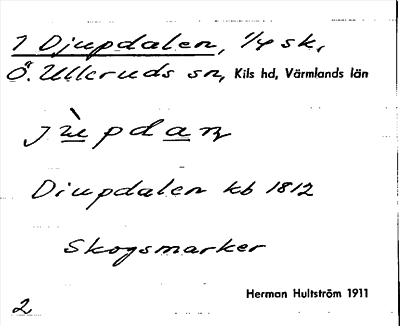 1 Djupdalen, 1/4 sk,
Ö. Ulleruds sn, Kils hd, Värmlands län
Diupdalen kb 1812
Skogsmarker
Herman Hultström 1911
2